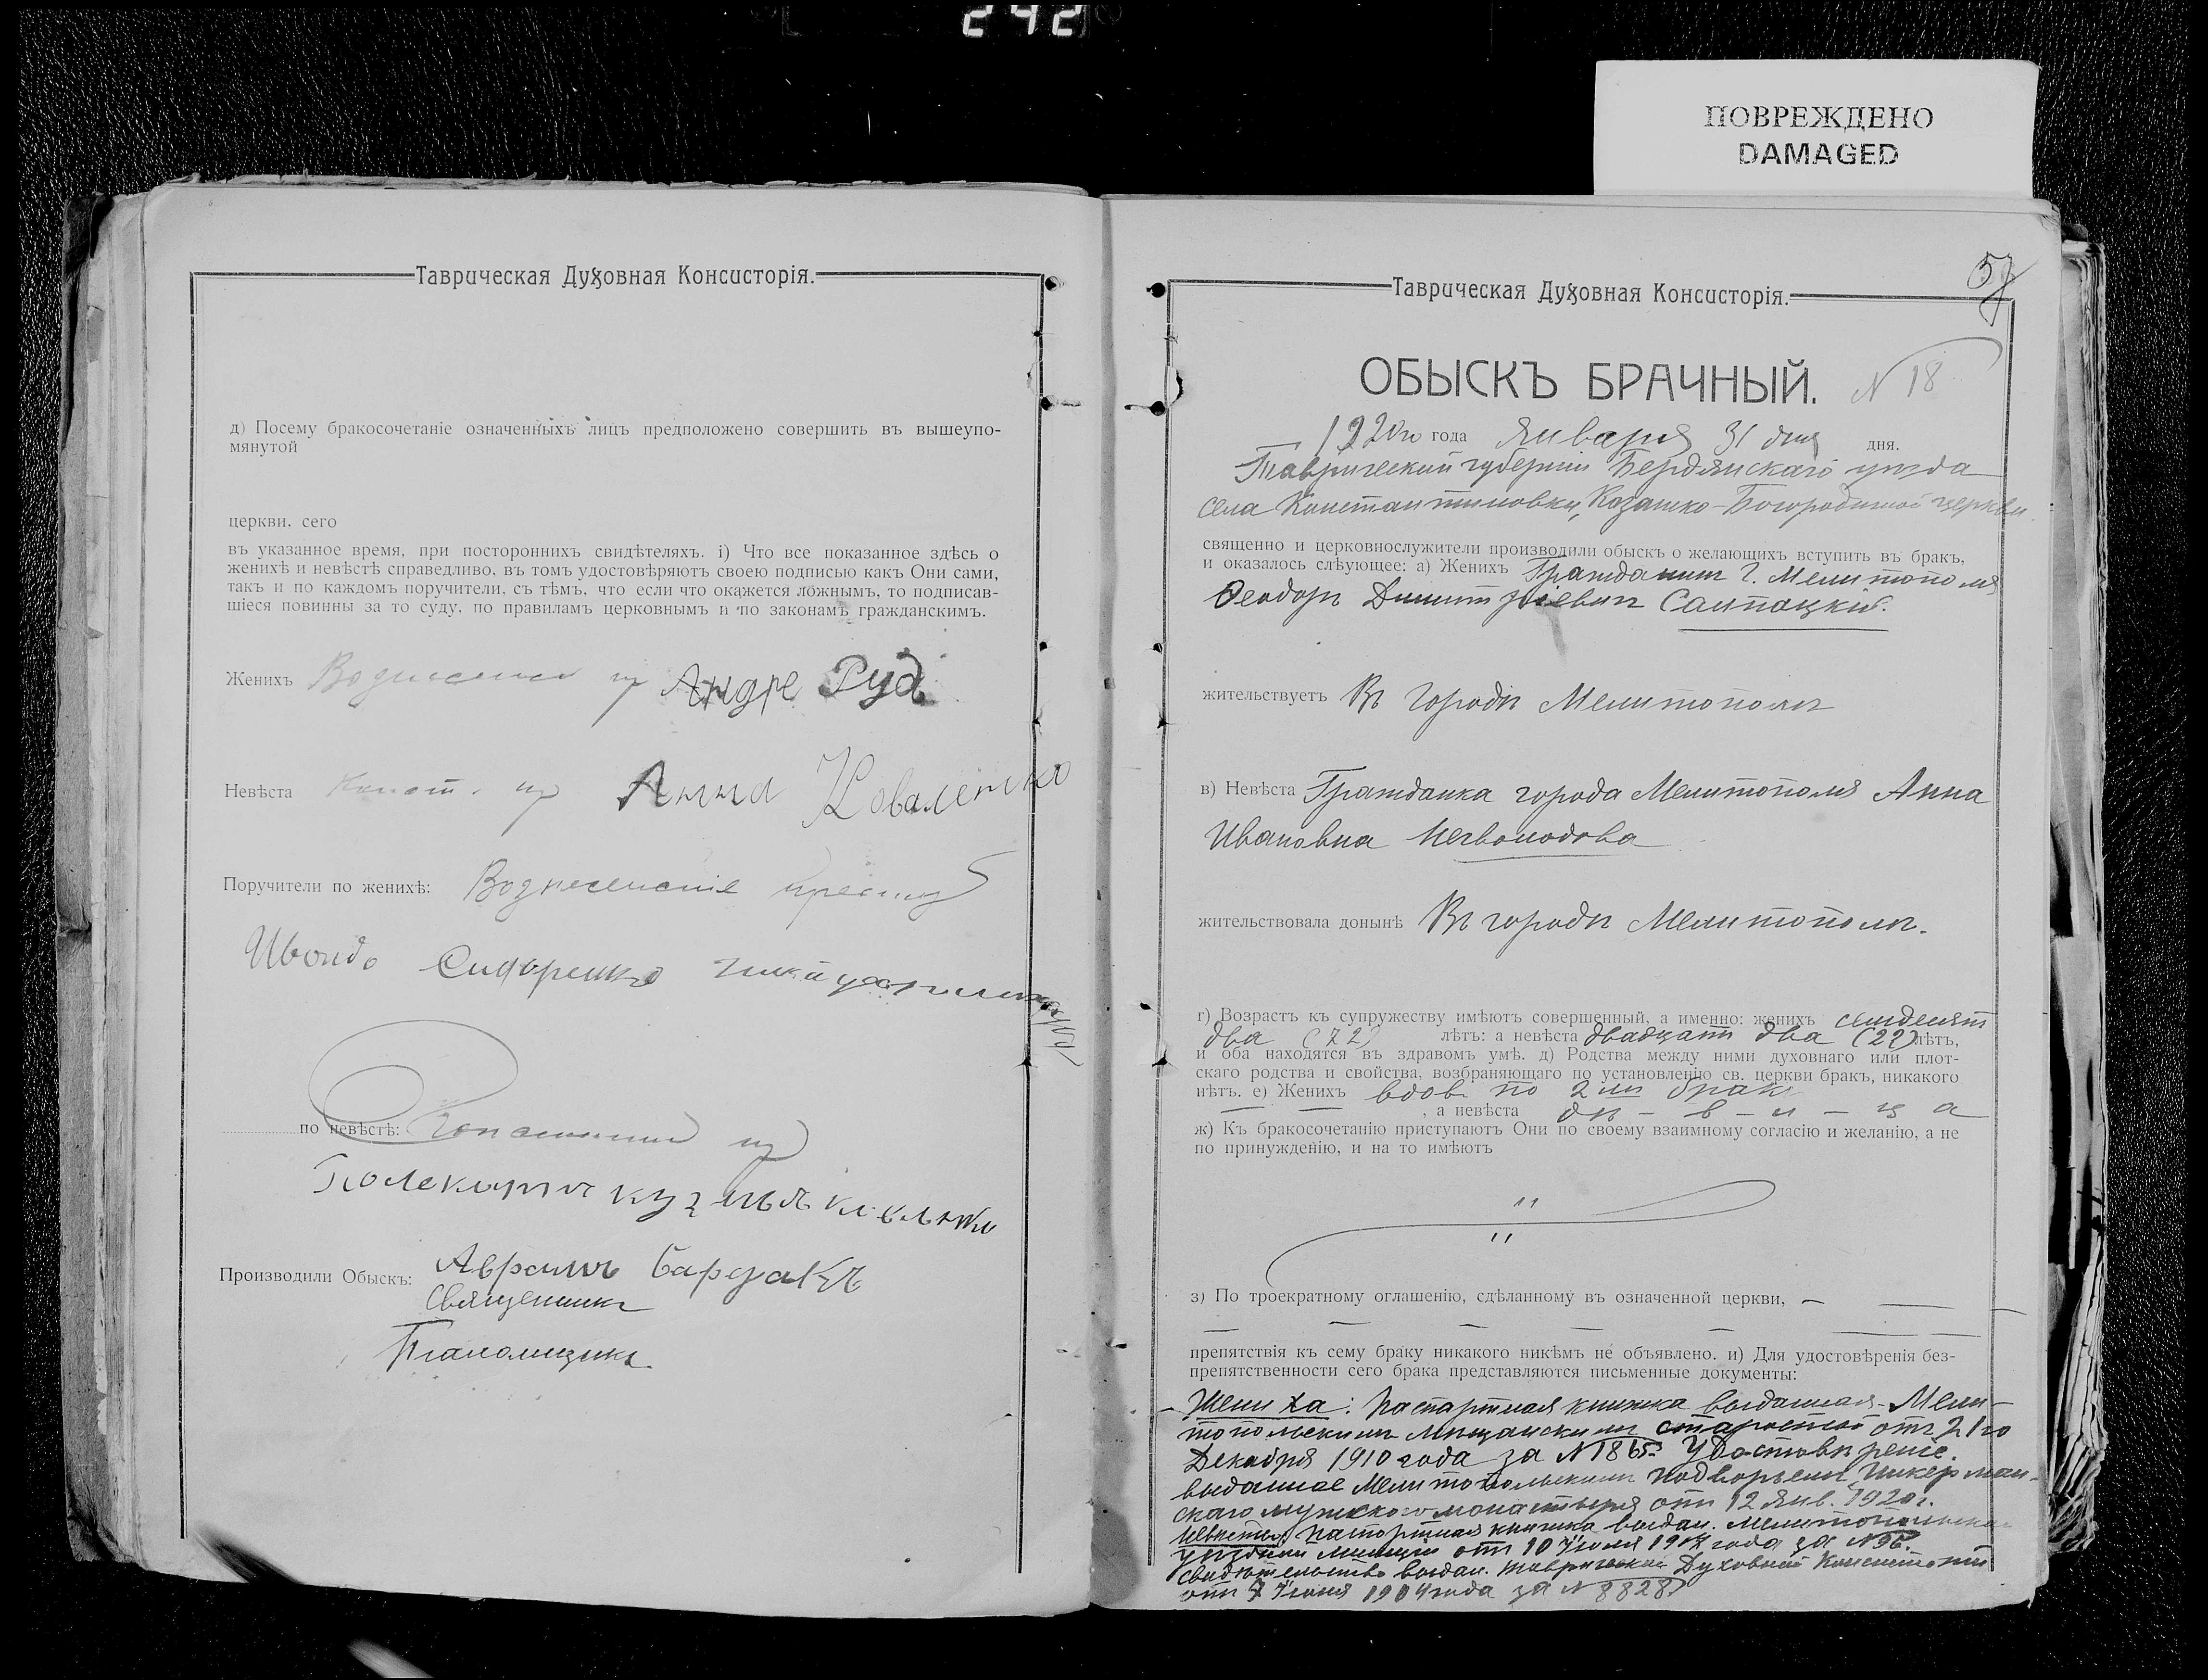 242
ПОВРЕЖДЕНО
DAMAGED
Таврическая Духовная Консисторія.
д) Посему бракосочетаніе означенныхъ лицъ предположено совершить въ вышеупо-
мянутой
церкви, сего
въ указанное время, при постороннихъ свидѣтеляхъ. і) Что все показанное здѣсь о
женихѣ и невѣстѣ справедливо, въ томъ удостовѣряютъ своею подписью какъ Они сами,
такъ и по каждомъ поручители, съ тѣмъ, что если что окажется ложнымъ, то подписав-
шіеся повинны за то суду, по правиламъ церковнымъ и по законамъ гражданскимъ.
Женихъ Андре Руд
Невѣста Конст. кр Анна Коваленко
Поручители по женихѣ: Вознесенскіе
Сидоренко
по невѣстѣ:
Производили Обыскъ: Аврамъ Бардакъ
Священникъ
Таврическая Духовная Консисторія.
57
ОБЫСКЪ БРАЧНЫЙ. N 18
1920го года Января 31 дня дня.
Таврической губерніи Бердянскаго уѣзда
села Константиновки, Казанско-Богородичной церкви
священно и церковнослужители производили обыскъ о желающихъ вступить въ бракъ,
и оказалось слѣующее: а) Женихъ Гражданинъ г. Мелитополя
Ѳеодоръ Димитріевичъ Сампацкій.
жительствуетъ Въ городѣ Мелитополѣ
в) Невѣста Гражданка города Мелитополя Анна
Ивановна Нечволодова
жительствовала донынѣ Въ городѣ Мелитополѣ.
г) Возрастъ къ супружеству имѣютъ совершенный, а именно: женихъ семдесят
два (72) лѣтъ: а невѣста двадцат два (22) лѣтъ,
и оба находятся въ здравомъ умѣ. д) Родства между ними духовнаго или плот-
скаго родства и свойства, возбраняющаго по установленію св. церкви бракъ, никакого
нѣтъ. е) Женихъ вдов. по 2мъ бракѣ
, а невѣста дѣ - в - и - ц а
ж) Къ бракосочетанію приступаютъ Они по своему взаимному согласію и желанію, а не
по принужденію, и на то имѣютъ
з) По троекратному оглашенію, сдѣланному въ означенной церкви,
препятствія къ сему браку никакого никѣмъ не объявлено. и) Для удостовѣренія без-
препятственности сего брака представляются письменные документы:
Жениха: Паспартная книжка выданная Мели-
топольскимъ Мѣщанскимъ старостой отъ 21го
Декабря 1910 года за N 1865. Удостовѣреніе
выданное Мелитопольскимъ подворьемъ Инкерман-
скаго мужского монастыря отъ 12 Янв. 1920 г.
Невѣсты: Паспортная книжка выдан. Мелитопольской
уѣздной милиціи отъ 10 Іюля года за N 96.
Свидѣтельство выдан. Таврической Духовной Консисторіи
отъ 7 Іюня 1904 года за N 8828